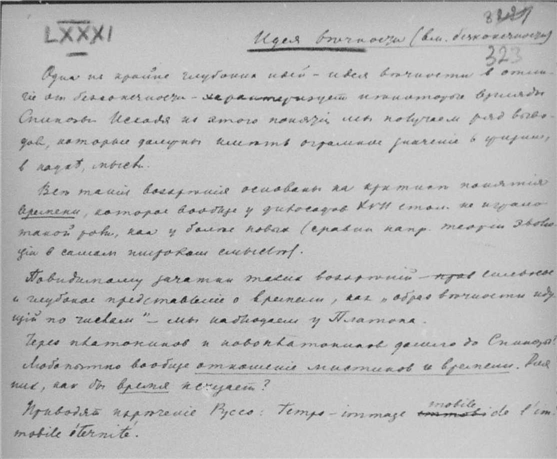 LXXXI
323
Идея вѣчности (вм. безконечности)
Одна из крайне глубоких идей – идея вѣчности в отли-
чіе от безконечности – характеризует некоторые взгляды
Спинозы. Исходя из этого понятія мы получаем ряд выво-
дов, которые должны имѣть огромное значеніе в
в мысли.
Всѣ такія воззрѣнія основаны на критикѣ понятія
времени, которое вообще у философов XVII стол. не играло
такой роли, как у болѣе новых (сравни напр. теорію эволю-
ціи в самом широком смыслѣ).
Повидимому зачатки таких воззрѣній – сильное
и глубокое представленіе о времени, как „образ вѣчности иду-
щій по числам" – мы наблюдаем у Платона.
Через платоников и новоплатоников дошло до Спинозы?
Любопытно вообще отношеніе мистиков к времени. Для
них, как бы время исчезает?
Приводят Руссо: image mobile de l'im-
mobile éternité.